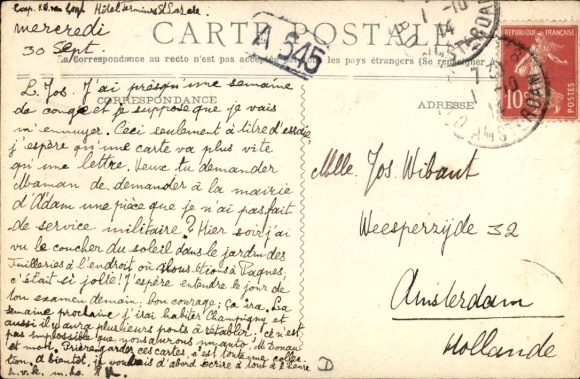 Hôtel Terminus St Lazare
CARTE POSTALE
La Correspondance au recto n'est pas acceptée par tous les pays étrangers (Se renseigner
CORRESPONDANCE
ADRESSE
A 545
RÉPUBLIQUE FRANÇAISE
10c
POSTES
mercredi
30 Sept.
L. Jos. J'ai presqu'une semaine
de congé et je suppose que je vais
m'ennuyer. Ceci seulement à titre d'essai,
j'espère qu'une carte va plus vite
qu'une lettre. Veux tu demander
Maman de demander à la mairie
d'Adam une pièce que je n'ai pas fait
de service militaire? Hier soir j'ai
vu le coucher du soleil dans le jardin des
Tuilleries à l'endroit où nous étions à Paques,
c'était si joli! J'espère entendre le jour de
ton examen demain, bon courage; Ça ira. La
semaine prochaine j'irai habiter Champigny et
aussi il y aura plusieurs ponts à rétablir; il n'est
pas impossible que nous aurons
et moi. Prière garder ces cartes, c'est toute ma collec-
tion. A bientôt, je voudrais d'abord écrire à tout à
Mlle. Jos. Wibaut
Weesperzijde 32
Amsterdam
Hollande
D